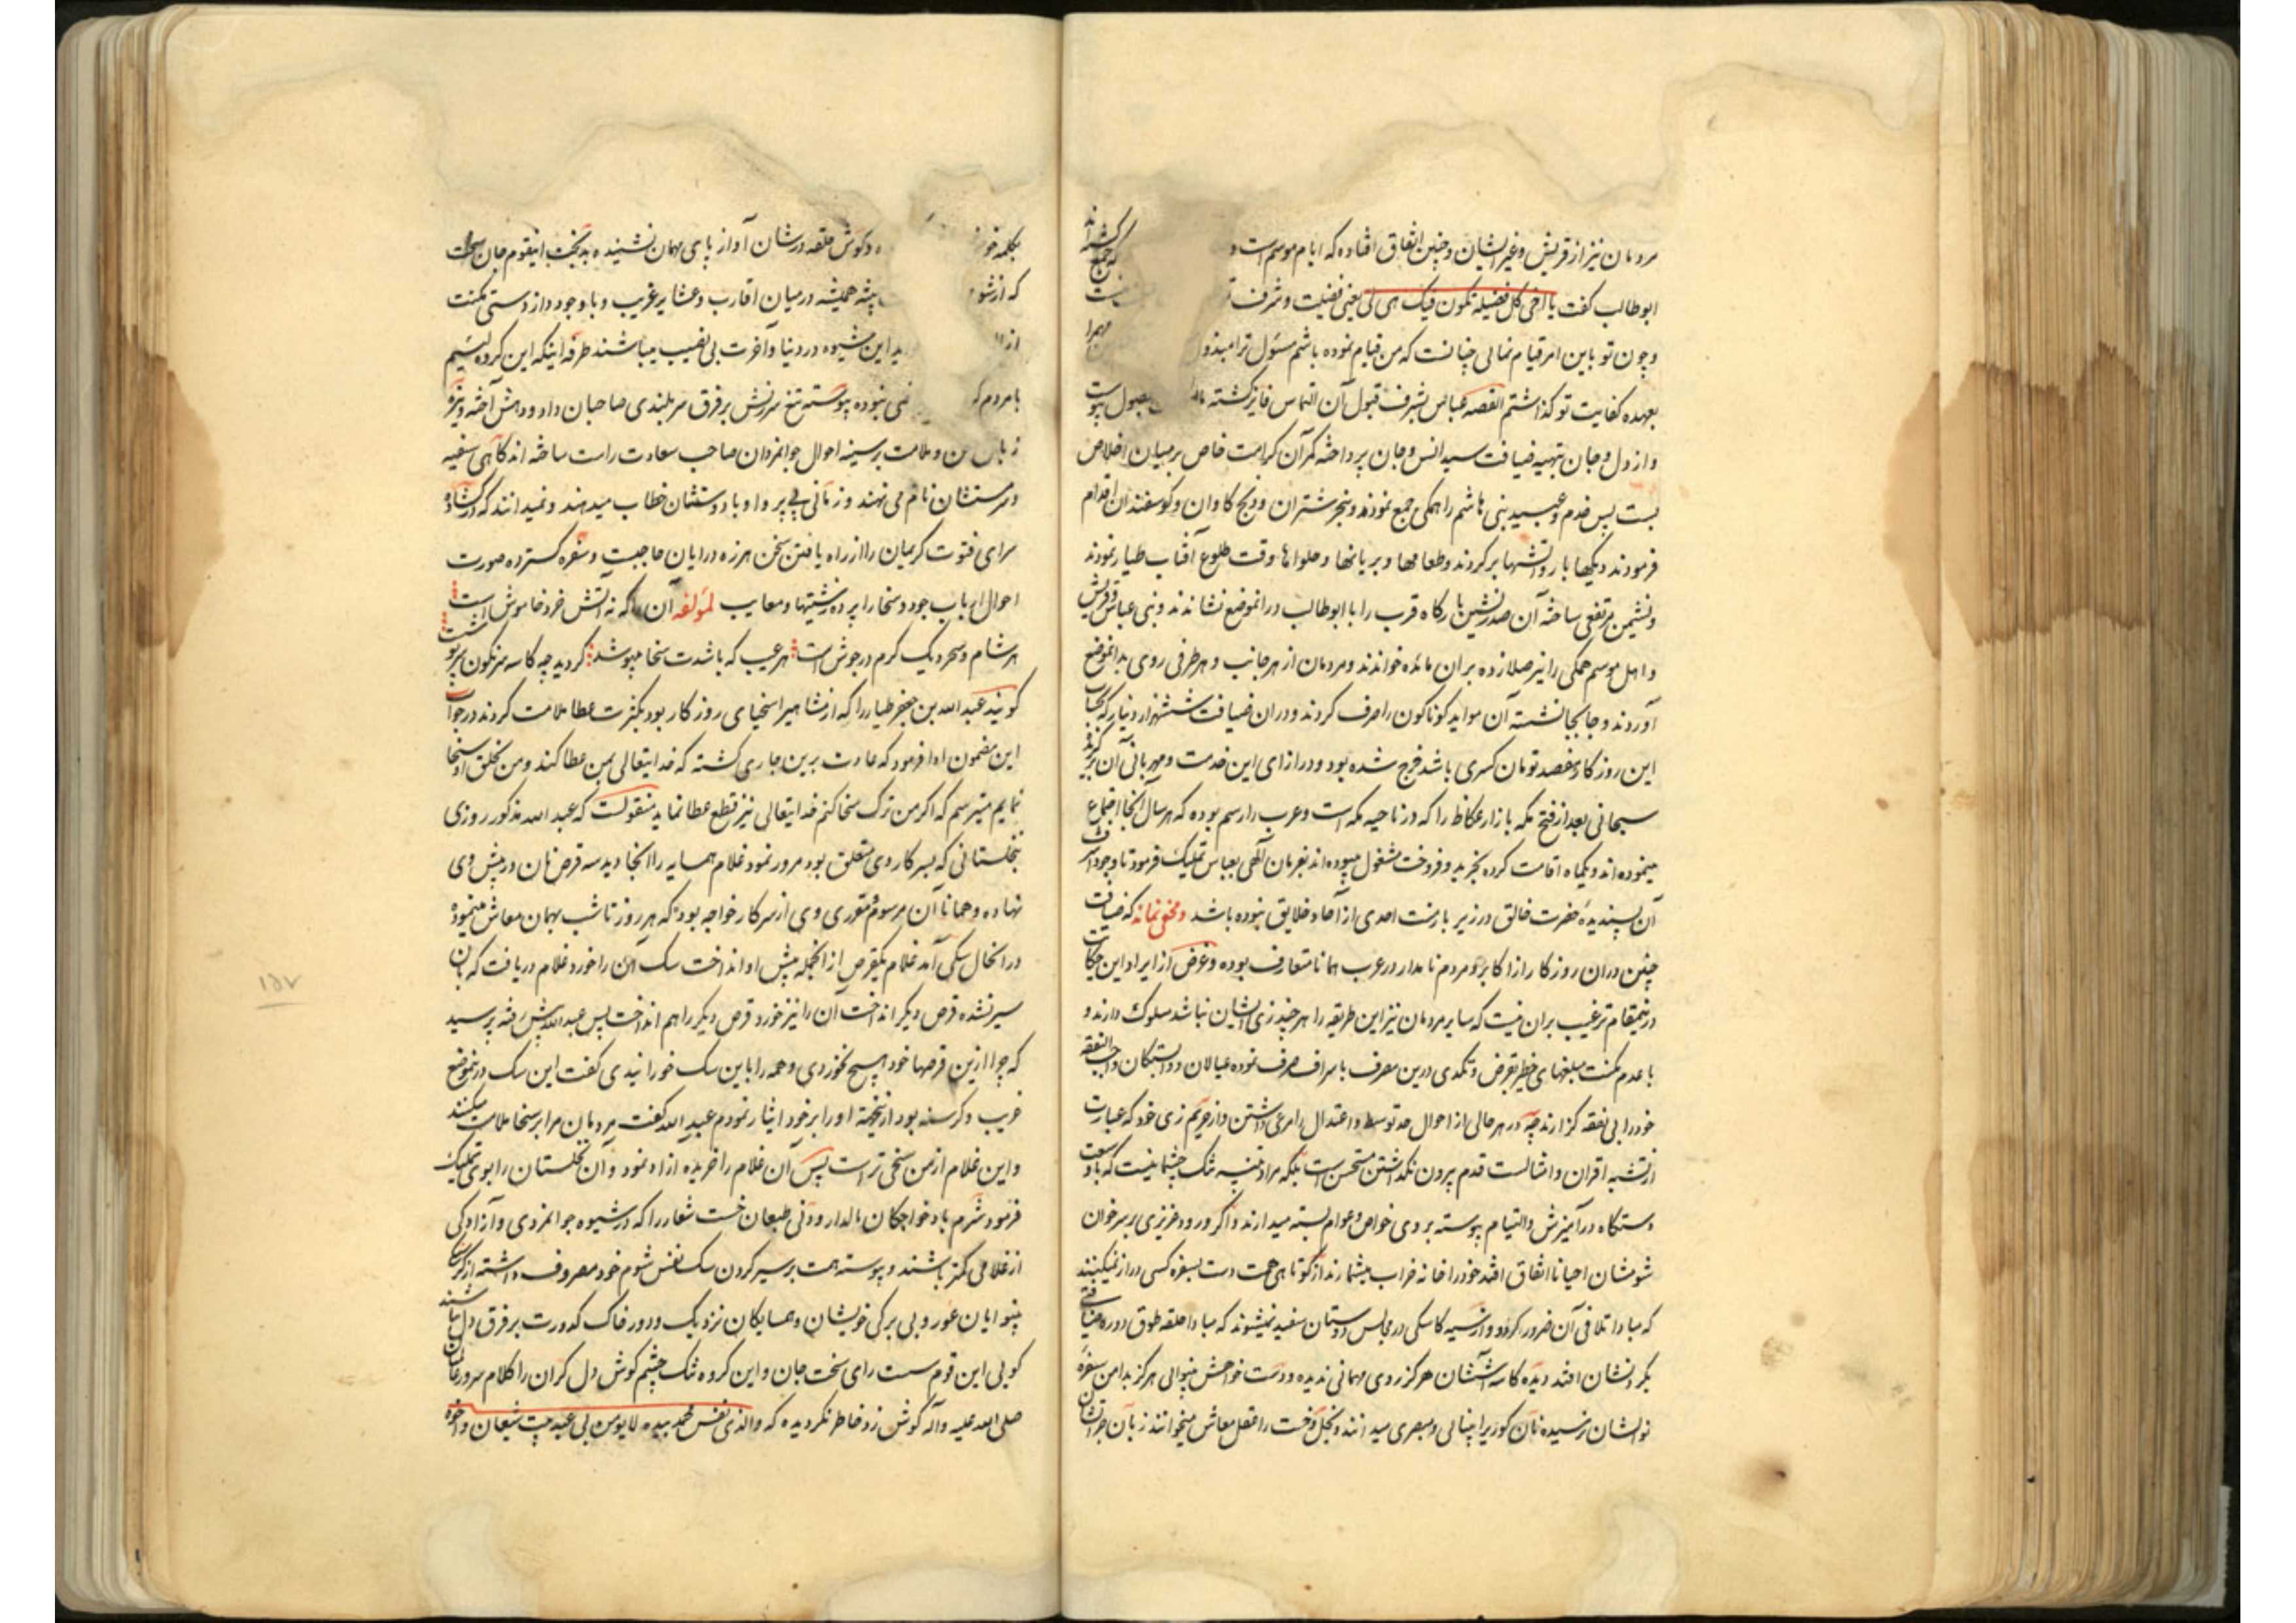 مردمان نیز از قریش و غیر ایشان و چنین اتفاق افتاده که ایام موسم است و
ابوطالب گفت یا اخی کل فضیلة تکون فیک هی لی یعنی فضیلت و شرف
و چون تو باین امر قیام نمائی چنانست که من قیام نموده باشم مسئول ترا مبذول
بعهده کفایت تو گذاشتم القصه عباس بشرف قبول آن التماس فایز گشته
و از دل و جان بتهیه ضیافت سید انس و جان پرداخته کمر آن کرامت خاص بر میان اخلاص
بست پس خدم و عبید بنی هاشم را همگی جمع نمودند و بنحر شتران و ذبح گاوان و گوسفندان اقدام
فرمودند دیگها بار و آتشها بر کردند و طعامها و بریانها و حلواها وقت طلوع آفتاب طیار نمودند
و نشیمن مرتفعی ساخته آن صدر نشین بارگاه قرب را با ابوطالب در آنموضع نشاندند و بنی عباس و قریش
و اهل موسم همگی را نیز صلا زده بر آن مائده خواندند و مردمان از هر جانب و هر طرفی روی بدانموضع
آوردند و جابجا نشسته آن مواید گوناگون را صرف کردند و در آن ضیافت ششهزار دینار که بحساب
این روزگار هفصد تومان کسری باشد خرج شده بود و در ازای این خدمت و مهربانی آن برگزیده
سبحانی بعد از فتح مکه بازار عکاظ را که در ناحیه مکه است و عرب را رسم بوده که هر سال آنجا اجتماع
مینموده اند و یکماه اقامت کرده بخرید و فروخت مشغول میبوده اند بفرمان الهی بعباس تملیک فرمود تا وجود اشرف
آن پسندیده حضرت خالق در زیر بار منت احدی از آحاد خلایق نبوده باشد و مخفی نماند که ضیافت
چنین در آن روزگار از اکابر و مردم نامدار در عرب همانا متعارف بوده و غرض از ایراد این حکایت
در ینمقام ترغیب بر آن نیست که سایر مردمان نیز این طریقه را هر چند زی ایشان نباشد مسلوک دارند و
با عدم مکنت مبلغهای خطیر بقرض و تکدی درین مصرف باسراف صرف نموده عیالان و وابستگان واجب النفقه
خود را بی نفقه گذارند چه در هر حالی از احوال حد توسط و اعتدال را مرعی داشتن و از حریم زی خود که عبارت
از تشبه اقران و امثالست قدم بیرون نگذاشتن مستحسن است بلکه مراد تنبیه تنگ چشمانیست که با وسعت
دستگاه در آمیزش و التیام پیوسته بر وی خواص و عوام بسته میدارند و اگر ورود عزیزی بر سر خوان
شومشان احیانا اتفاق افتد خود را خانه خراب میشمارند از کوتاهی همت دست بسفره کسی دراز نمیکنند
که مبادا تلافی آن ضرور گردد و از سیه کاسگی در مجلس دوستان سفید نمیشوند که مبادا حلقه طوق دوره ضیافتی
بگردنشان افتد دیده کاسه آششان هرگز روی مهمانی ندیده و دست خواهش بینوائی هرگز بدامن سفره
نوالشان نرسیده نان کور را بینائی و مبصری میدانند و بخل و خست را عقل معاش میخوانند زبان
بکلمه و گوش حلقه درشان آواز پای مهمان نشنیده بدبخت اینقوم جان سخت
که از پیشه همیشه در میان اقارب و عشایر غریب و با وجود داز دستی مکنت
این شیوه در دنیا و آخرت بی نصیب میباشند طرفه اینکه این گروه لئیم
با مردم نبوده پیوسته تیغ سرزنش بر فرق سربلندی صاحبان داد و دهش آخته و نیزه
زبان و ملامت بر سینه احوال جوانمردان صاحب سعادت راست ساخته اند گاهی سفیه
و سرمستشان نام می نهند و زمانی بی پروا و باد دستشان خطاب میدهند و نمیدانند که در گشاده
سرای فتوت کریمان را از راه یافتن سخن هرزه درایان حاجبیست و سفره گسترده صورت
احوال ارباب جود و سخا را پرده زشتیها و معایب لمؤلفه آن را که نه آتش خرد خاموش است
هر شام و سحر دیگ کرم در جوش است هر عیب که باشدت سخا میپوشد گردید چه کاسه سرنگون سرپوش است
گویند عبد الله بن جعفر طیار را که از مشاهیر اسخیای روزگار بود بکثرت عطا ملامت کردند در جواب
این مضمون ادا فرمود که عادت برین جاری گشته که خدایتعالی بمن عطا کند و من بخلق او سخا
نمایم میترسم که اگر من ترک سخا کنم خدایتعالی نیز قطع عطا نماید منقولست که عبد الله مذکور روزی
بنخلستانی که بسرکار وی متعلق بود مرور نمود غلام همسایه را آنجا دید سه قرص نان در پیش وی
نهاده و همانا آن مرسوم مقرری وی از سرکار خواجه بود که هر روز تا شب بهمان معاش مینمود
در آنحال سگی آمد غلام یکقرص از آنجمله پیش او انداخت سگ آن را خورد غلام دریافت که بان
سیر نشده قرص دیگر انداخت آن را نیز خورد قرص دیگر را هم انداخت پس عبد الله پیش رفته پرسید
که چرا ازین قرصها خود هیچ نخوردی و همه را باین سگ خورانیدی گفت این سگ درینموضع
غریب و گرسنه بود ازینجهة او را بر خود ایثار نمودم عبد الله گفت مردمان مرا بر سخا ملامت میکنند
و این غلام از من سخی تر است پس آن غلام را خریده آزاد نمود و آن نخلستان را بوی تملیک
فرمود شرم باد خواجگان مالدار و دنی طبعان خست شعار را که در شیوه جوانمردی و آزادگی
از غلامی کمتر باشند و پیوسته همت بر سیر کردن سگ نفس شوم خود مصروف داشته از گرسنگی
بینوایان عور و بی برگی خویشان و همسایگان نزدیک و دور خاک کدورت بر فرق دل نباشند
گویی این قوم سست رای سخت جان و این گروه تنگ چشم گوش دل گران را کلام سرور عالمیان
صلی الله علیه و آله گوش زد خاطر نگردیده که والذی نفس محمد بیده لا یؤمن بی عبد یبیت شبعان و اخوه
۱۵۷